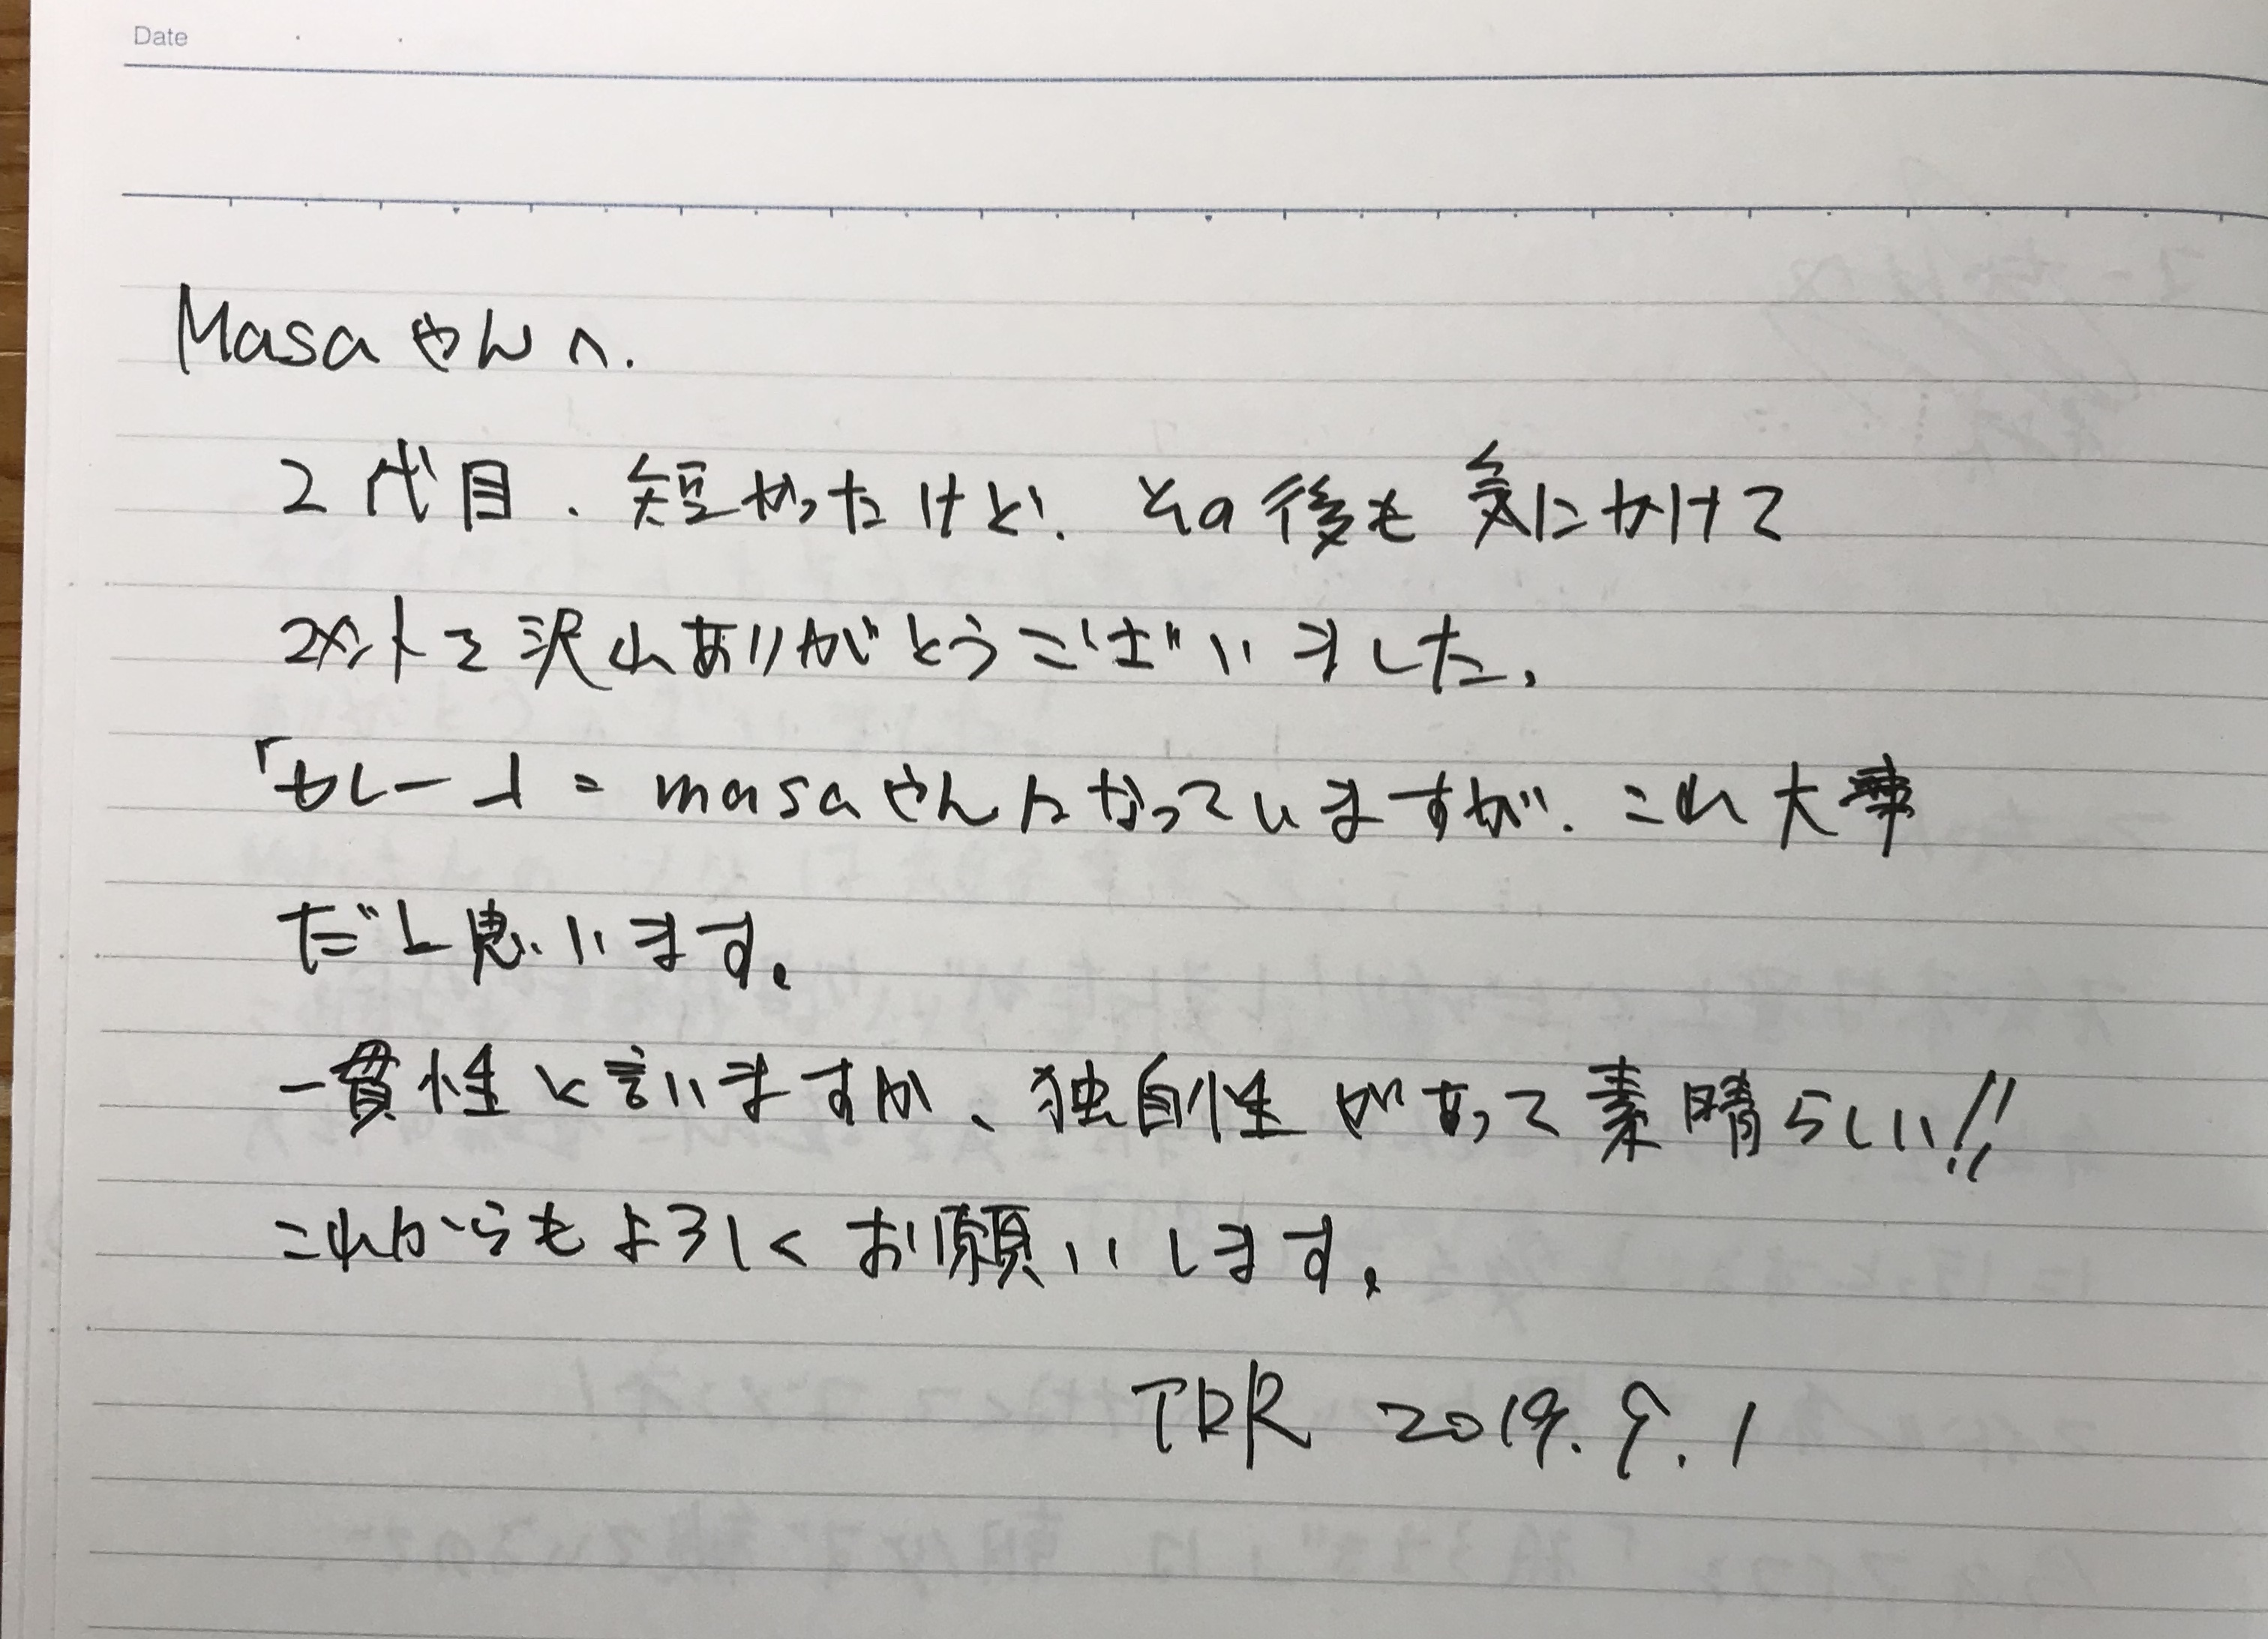 Date
Masaやんへ.
2代目、短かったけど、その後も気にかけて
コメントを沢山ありがとうございました。
「セレート = masaやんになっていますが、これ大事
だと思います。
一貫性と言いますか、独自性があって素晴らしい!!
これからもよろしくお願いします。
TRR 2019.9.1